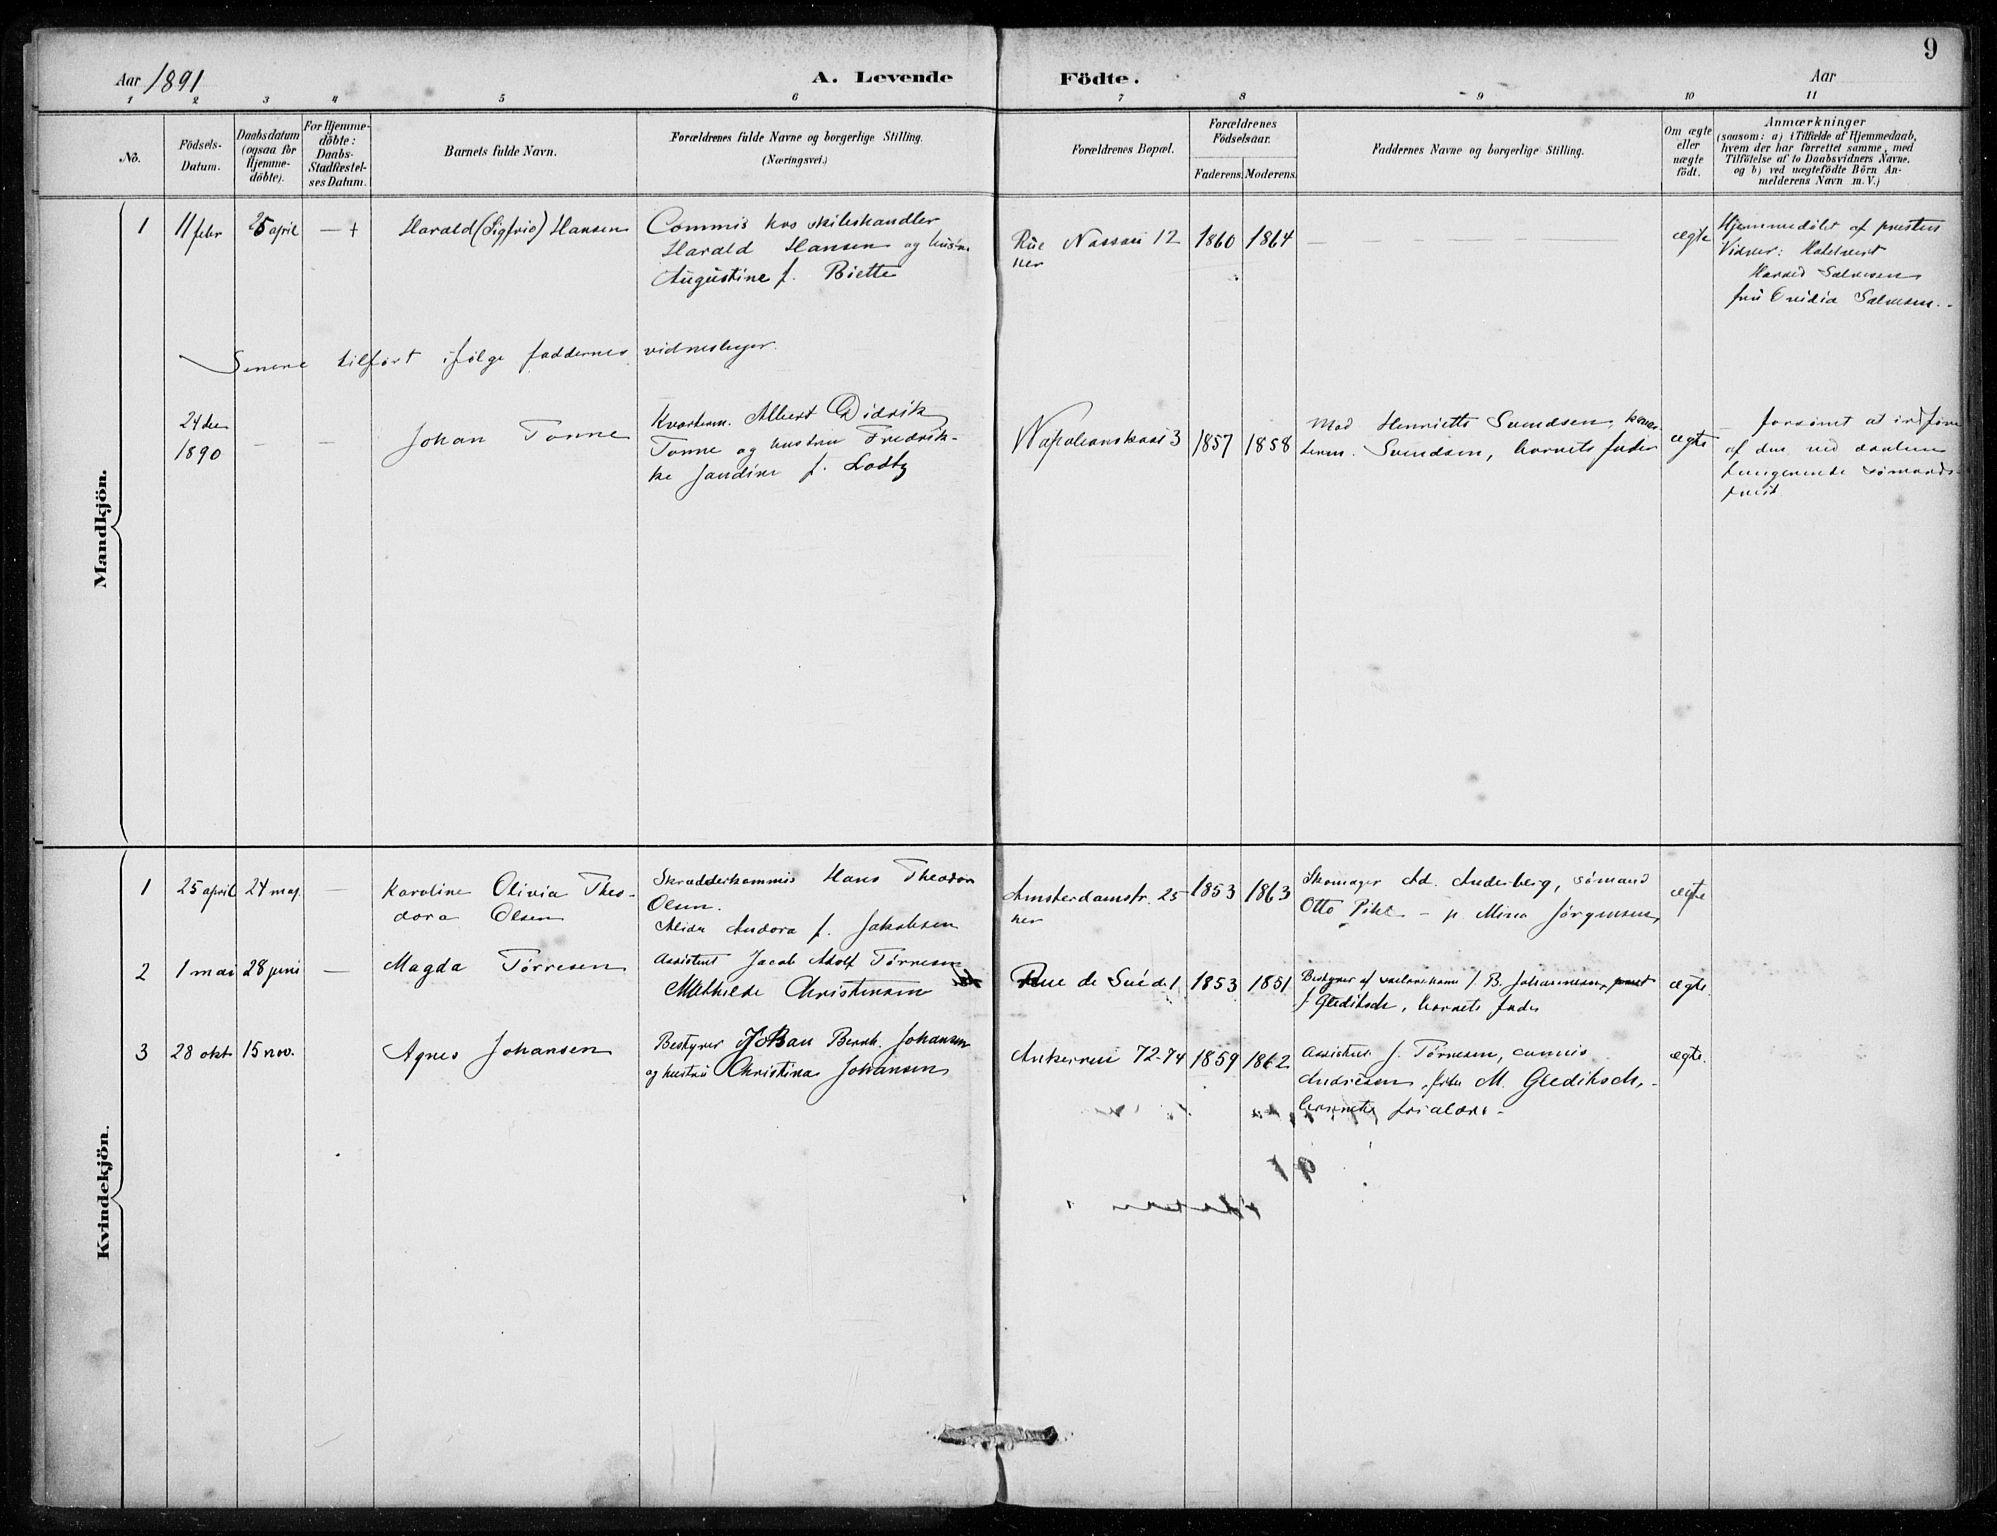 9
Aar 1891
A. Levende Födte.
Aar
1 2 3 4 5 6 7 8 9 10 11
No.
Födsels-Datum.
Daabsdatum (ogsaa for Hjemme-döbte).
For Hjemme-döbte: Daabs-Stadfæstel-ses Datum.
Barnets fulde Navn.
Forældrenes fulde Navne og borgerlige Stilling.
(Næringsvei.)
Forældrenes Bopæl.
Forældrenes Födselsaar.
Faderens. Moderens.
Faddernes Navne og borgerlige Stilling.
Om ægte eller uægte födt.
Anmærkninger
(saasom: a) i Tilfælde af Hjemmedaab,
hvem der har forrettet samme, med
Tilföielse af to Daabsvidners Navne.
og b) ved uægtefödte Börn An-
melderens Navn m. V.)
Mandkjön.
1 11 febr 25 april — + Harald (Sigfrid) Hansen
Commis hos skibshandler
Harald Hansen og hustru
Augustine f. Biette
Rue Nassau 12
her
1860 1864 — ægte
Hjemmedøbt af presten
Vidner:
Harald Salvesen
fru Ovidia Salvesen.
Senere tilført ifølge faddernes vidnesbyrd.
24 dec
1890
— — Johan Tonne
Albert Didrik
Tonne og hustru Fredrik-
ke Jandine f. Lodby
Napoleonskaai 3
1857 1858
Mad Henriette Svendsen,
Svendsen, barnets fader
ægte
forsømt at indføre
af den ved daaben
fungerende sømands-
prest
Kvindekjön.
1 25 april 24 maj — Karoline Olivia Theo-
dora Olsen
Skrædderkommis Hans Theodor
Olsen.
Alida Andora f. Jakobsen
Amsterdamstr. 25
her
1853 1863
Skomager Ad. Anderberg, sømand
Otto Pihl — Mina Jørgensen,
ægte
2 1 mai 28 juni — Magda Tørresen
Assistent Jacob Adolf Tørresen
Mathilde Christensen
Rue de Suéde 1
1853 1851
Bestyrer af J. B. Johannesen,
Gleditsch, barnets fader
ægte.
3 28 okt 15 nov. Agnes Johansen
Bestyrer Johan Bernh. Johansen
og hustru Christina Johansen
Ankerrui 72-74
1859 1862
Assistent J. Tørresen, commis
Andresen, M. Gleditsch,
barnets forældre
ægte.